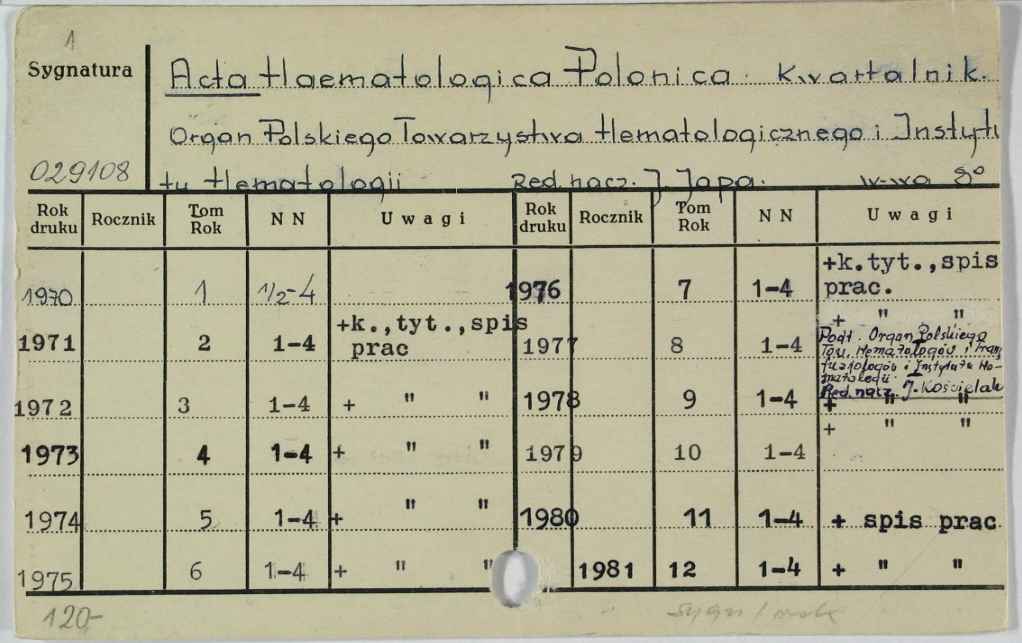 1
Sygnatura
Acta Haematologica Polonica. Kwartalnik.
Organ Polskiego Towarzystwa Hematologicznego i Instytu
029108
tu Hematologii Red. nacz. J. Japa. W-wa 8°
Rok druku Rocznik Tom Rok N N Uwagi Rok druku Rocznik Tom Rok N N Uwagi
1970 1 1/2-4 1976 7 1-4 +k.tyt.,spis prac.
1971 2 1-4 +k.,tyt.,spis prac 1977 8 1-4 + " "
Podt. Organ Polskiego
Tow. Hematologów i Trans
fuzjologów i Instytutu He-
matologii.
Red. nacz. J. Kościelak
1972 3 1-4 + " " 1978 9 1-4 + " "
1973 4 1-4 + " " 1979 10 1-4 + " "
1974 5 1-4 + " " 1980 11 1-4 + spis prac
1975 6 1-4 + " " 1981 12 1-4 + " "
120-